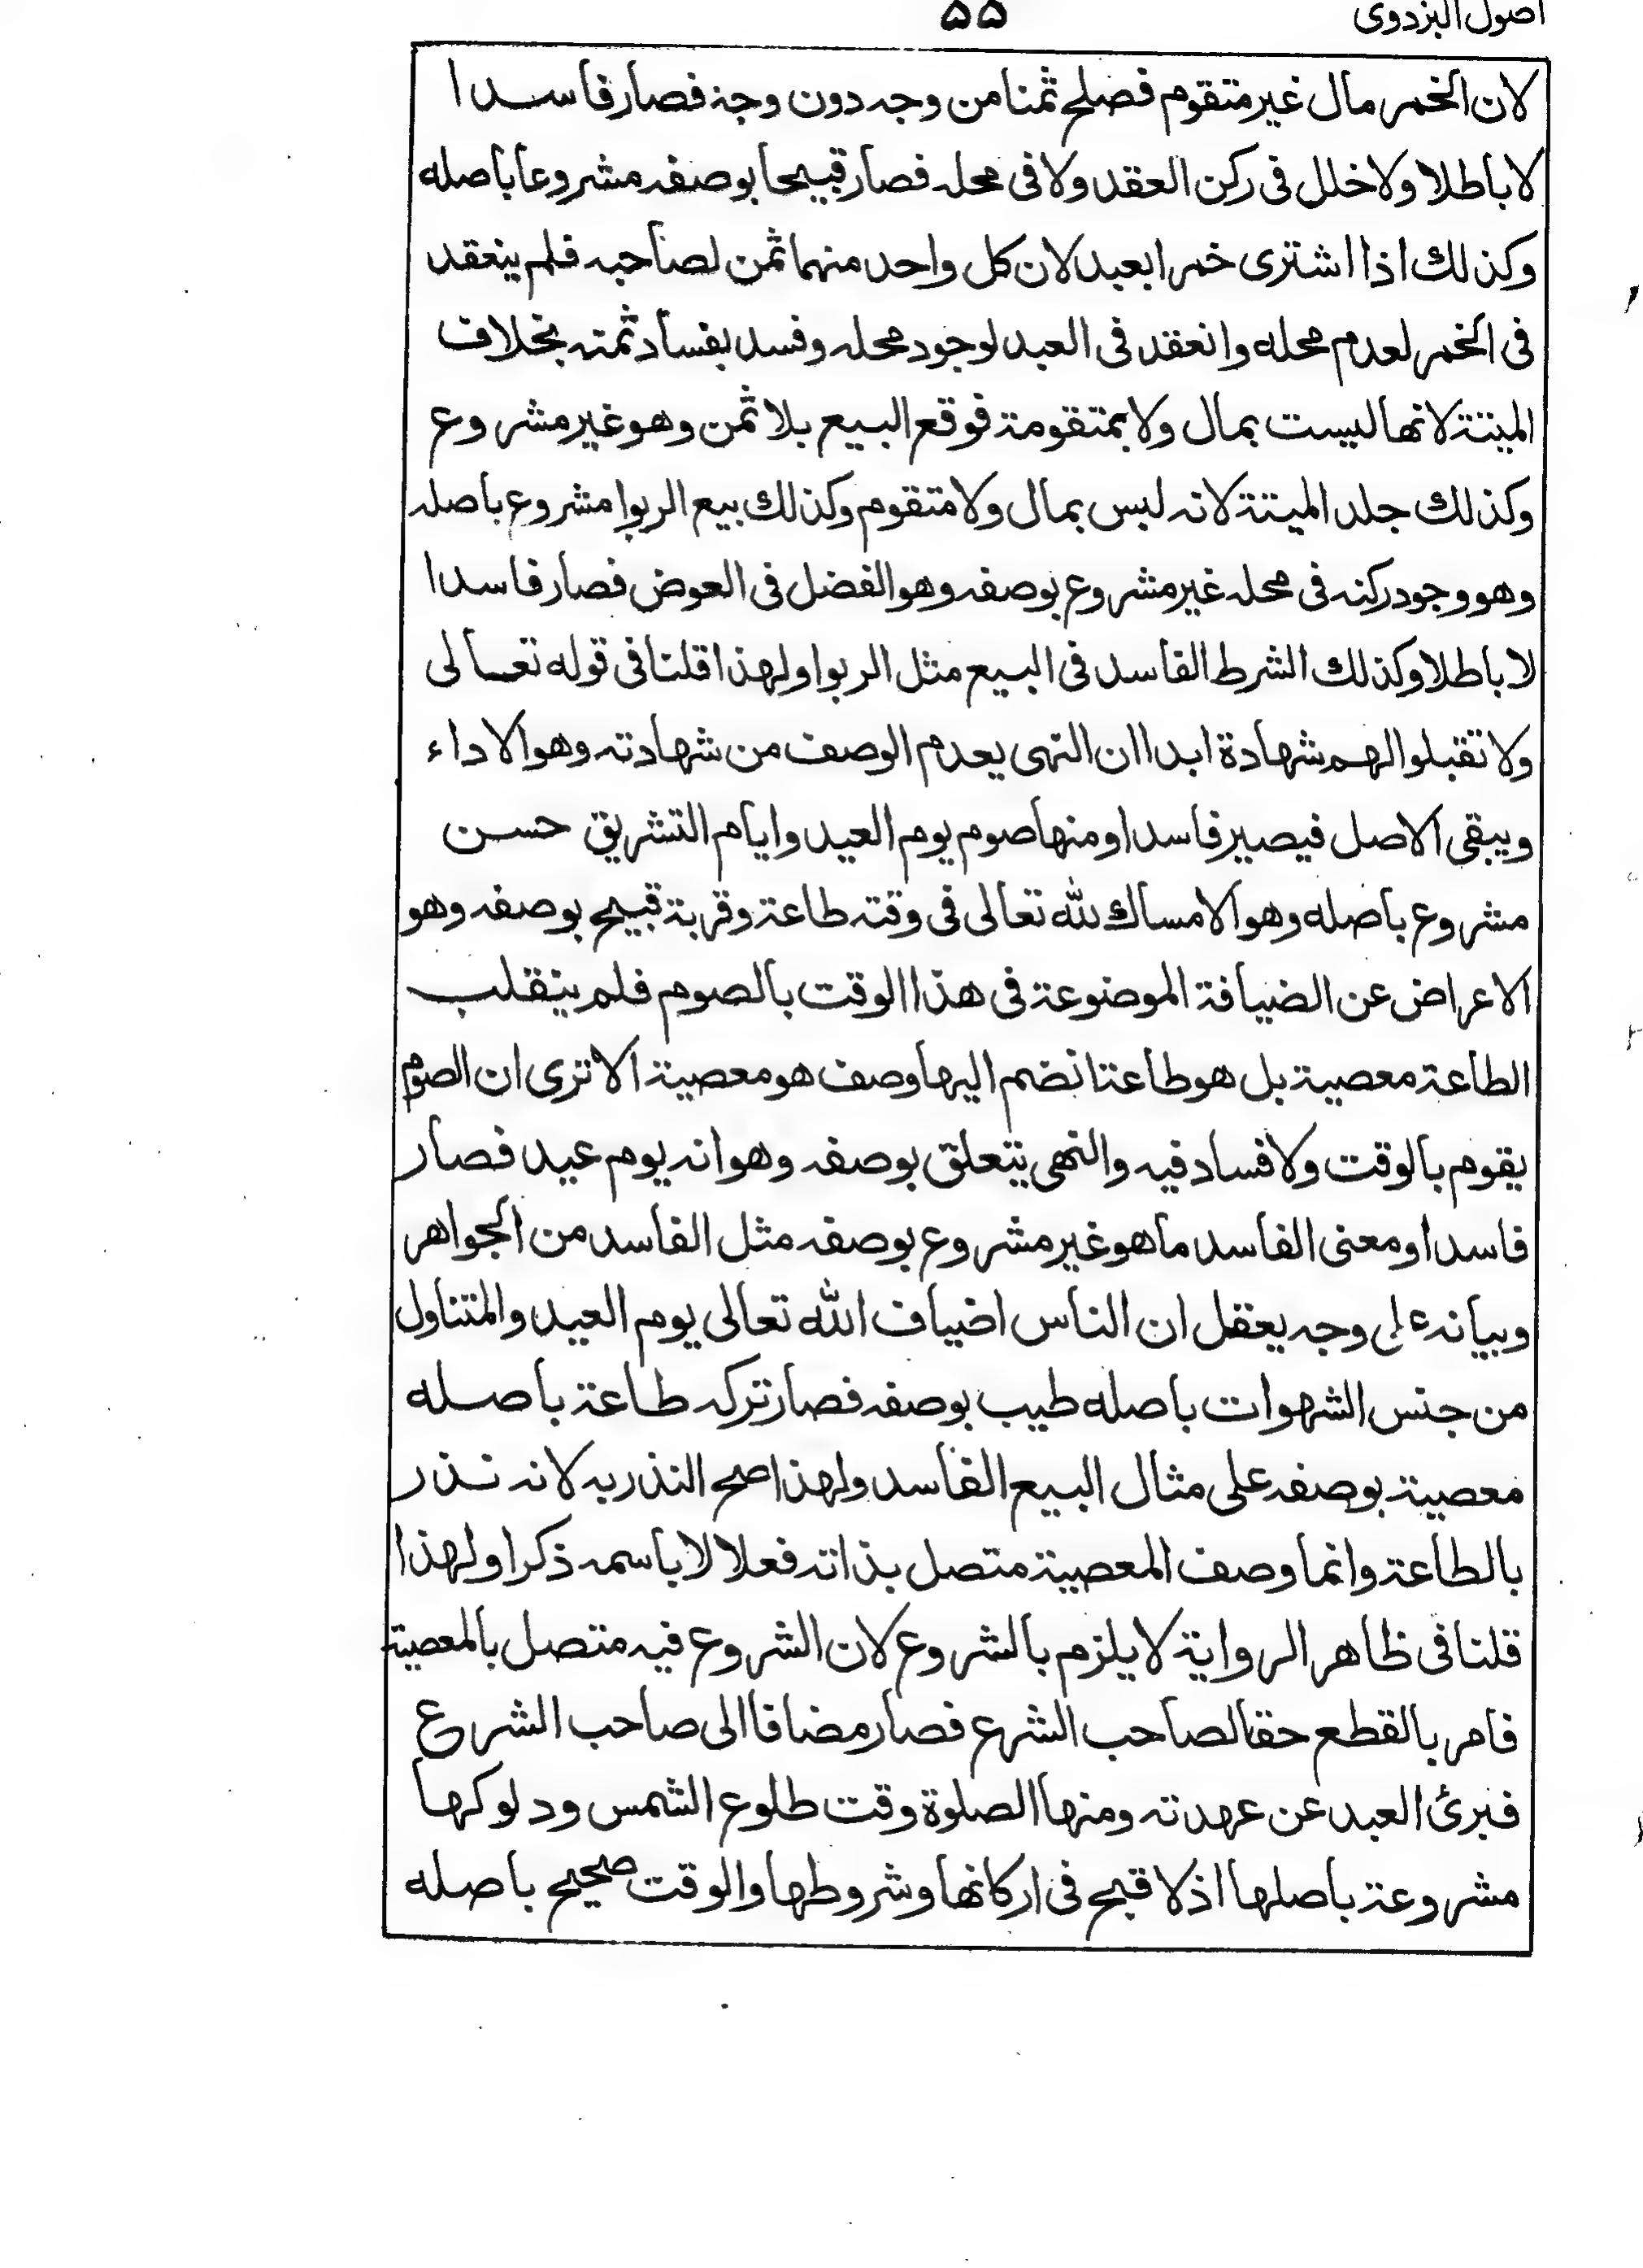 اصول البزدوی
۵۵
لان الخمر مال غير متقوم فصلح ثمنا من وجه دون وجه فصار فاسدا
لا باطلا ولا خلل فى ركن العقد ولا فى محله فصار قبيحا بوصفه مشروعا باصله
وكذلك اذا اشترى خمرا بعبد لان كل واحد منهما ثمن لصاحبه فلم ينعقد
فى الخمر لعدم محله وانعقد فى العبد لوجود محله وفسد بفساد ثمنه بخلاف
الميتة لانها ليست بمال ولا بمتقومة فوقع البيع بلا ثمن وهو غير مشروع
وكذلك جلد الميتة لانه ليس بمال ولا متقوم وكذلك بيع الربوا مشروع باصله
وهو وجود ركنه فى محله غير مشروع بوصفه وهو الفضل فى العوض فصار فاسدا
لا باطلا وكذلك الشرط الفاسد فى البيع مثل الربوا ولهذا قلنا فى قوله تعالى
ولا تقبلوا لهم شهادة ابدا ان النهى يعدم الوصف من شهادته وهو الاداء
ويبقى الاصل فيصير فاسدا ومنها صوم يوم العيد وايام التشريق حسن
مشروع باصله وهو الامساك لله تعالى فى وقته طاعة وقربة قبيح بوصفه وهو
الاعراض عن الضيافة الموضوعة فى هذا الوقت بالصوم فلم ينقلب
الطاعة معصية بل هو طاعة انضم اليها وصف هو معصية الا ترى ان الصوم
يقوم بالوقت ولا فساد فيه والنهى يتعلق بوصفه وهو انه يوم عيد فصار
فاسدا ومعنى الفاسد ما هو غير مشروع بوصفه مثل الفاسد من الجواهر
وبيانه على وجه يعقل ان الناس اضياف الله تعالى يوم العيد والمتناول
من جنس الشهوات باصله طيب بوصفه فصار تركه طاعة باصله
معصية بوصفه على مثال البيع الفاسد ولهذا صح النذر به لانه نذر
بالطاعة وانما وصف المعصية متصل بذاته فعلا لا باسمه ذكرا ولهذا
قلنا فى ظاهر الرواية لا يلزم بالشروع لان الشروع فيه متصل بالمعصية
فامر بالقطع حقا لصاحب الشرع فصار مضافا الى صاحب الشرع
فبرئ العبد عن عهدته ومنها الصلوة وقت طلوع الشمس ودلوكها
مشروعة باصلها اذ لا قبح فى اركانها وشروطها والوقت صحيح باصله